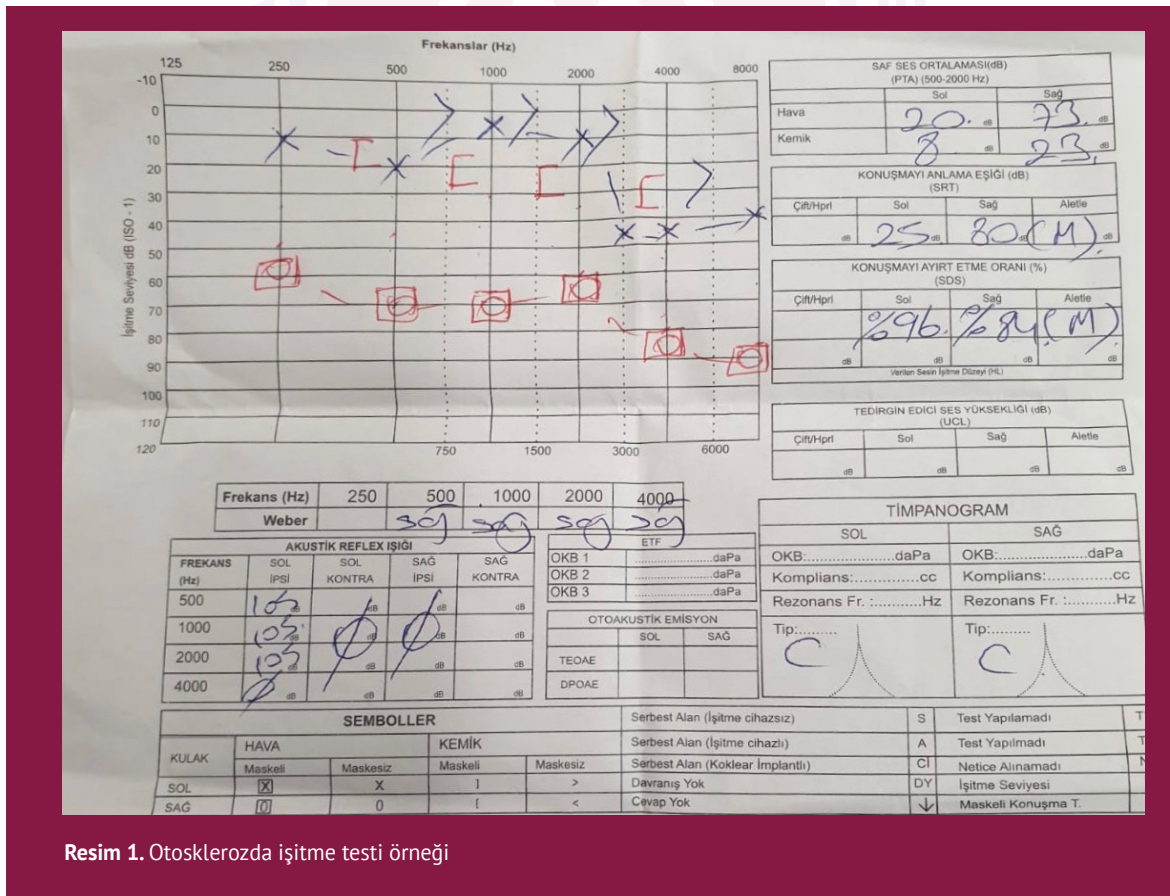 Frekanslar (Hz)
125 250 500 1000 2000 4000 8000
-10
0
10
20
30
40
50
60
70
80
90
100
110
120
İşitme Seviyesi dB (ISO - 1)
750 1500 3000 6000
SAF SES ORTALAMASI(dB)
(PTA) (500-2000 Hz)
Sol Sağ
Hava 20. dB 73. dB
Kemik 8 dB 23. dB
KONUŞMAYI ANLAMA EŞİĞİ (dB)
(SRT)
Çift/Hprl Sol Sağ Aletle
dB 25 dB 80 dB (M) dB
KONUŞMAYI AYIRT ETME ORANI (%)
(SDS)
Çift/Hprl Sol Sağ Aletle
%96. %84 (M)
dB dB dB dB
Verilen Sesin İşitme Düzeyi (HL)
TEDİRGİN EDİCİ SES YÜKSEKLİĞİ (dB)
(UCL)
Çift/Hprl Sol Sağ Aletle
dB dB dB dB
Frekans (Hz) 250 500 1000 2000 4000
Weber sağ sağ sağ sağ
AKUSTİK REFLEX IŞIĞI
FREKANS (Hz) SOL İPSİ SOL KONTRA SAĞ İPSİ SAĞ KONTRA
500 105 dB dB dB dB
1000 105 dB dB dB
2000 105 dB dB dB
4000 dB dB dB dB
ETF
OKB 1 ..................daPa
OKB 2 ..................daPa
OKB 3 ..................daPa
OTOAKUSTİK EMİSYON
SOL SAĞ
TEOAE
DPOAE
TİMPANOGRAM
SOL SAĞ
OKB:................daPa OKB:................daPa
Komplians:.............cc Komplians:.............cc
Rezonans Fr. :..........Hz Rezonans Fr. :..........Hz
Tip:......... Tip:.........
C C
SEMBOLLER
KULAK HAVA KEMİK
Maskeli Maskesiz Maskeli Maskesiz
SOL X X ] >
SAĞ 0 0 [ <
Serbest Alan (İşitme cihazsız) S Test Yapılamadı
Serbest Alan (İşitme cihazlı) A Test Yapılmadı
Serbest Alan (Koklear İmplantlı) CI Netice Alınamadı
Davranış Yok DY İşitme Seviyesi
Cevap Yok ↓ Maskeli Konuşma T.
Resim 1. Otosklerozda işitme testi örneği